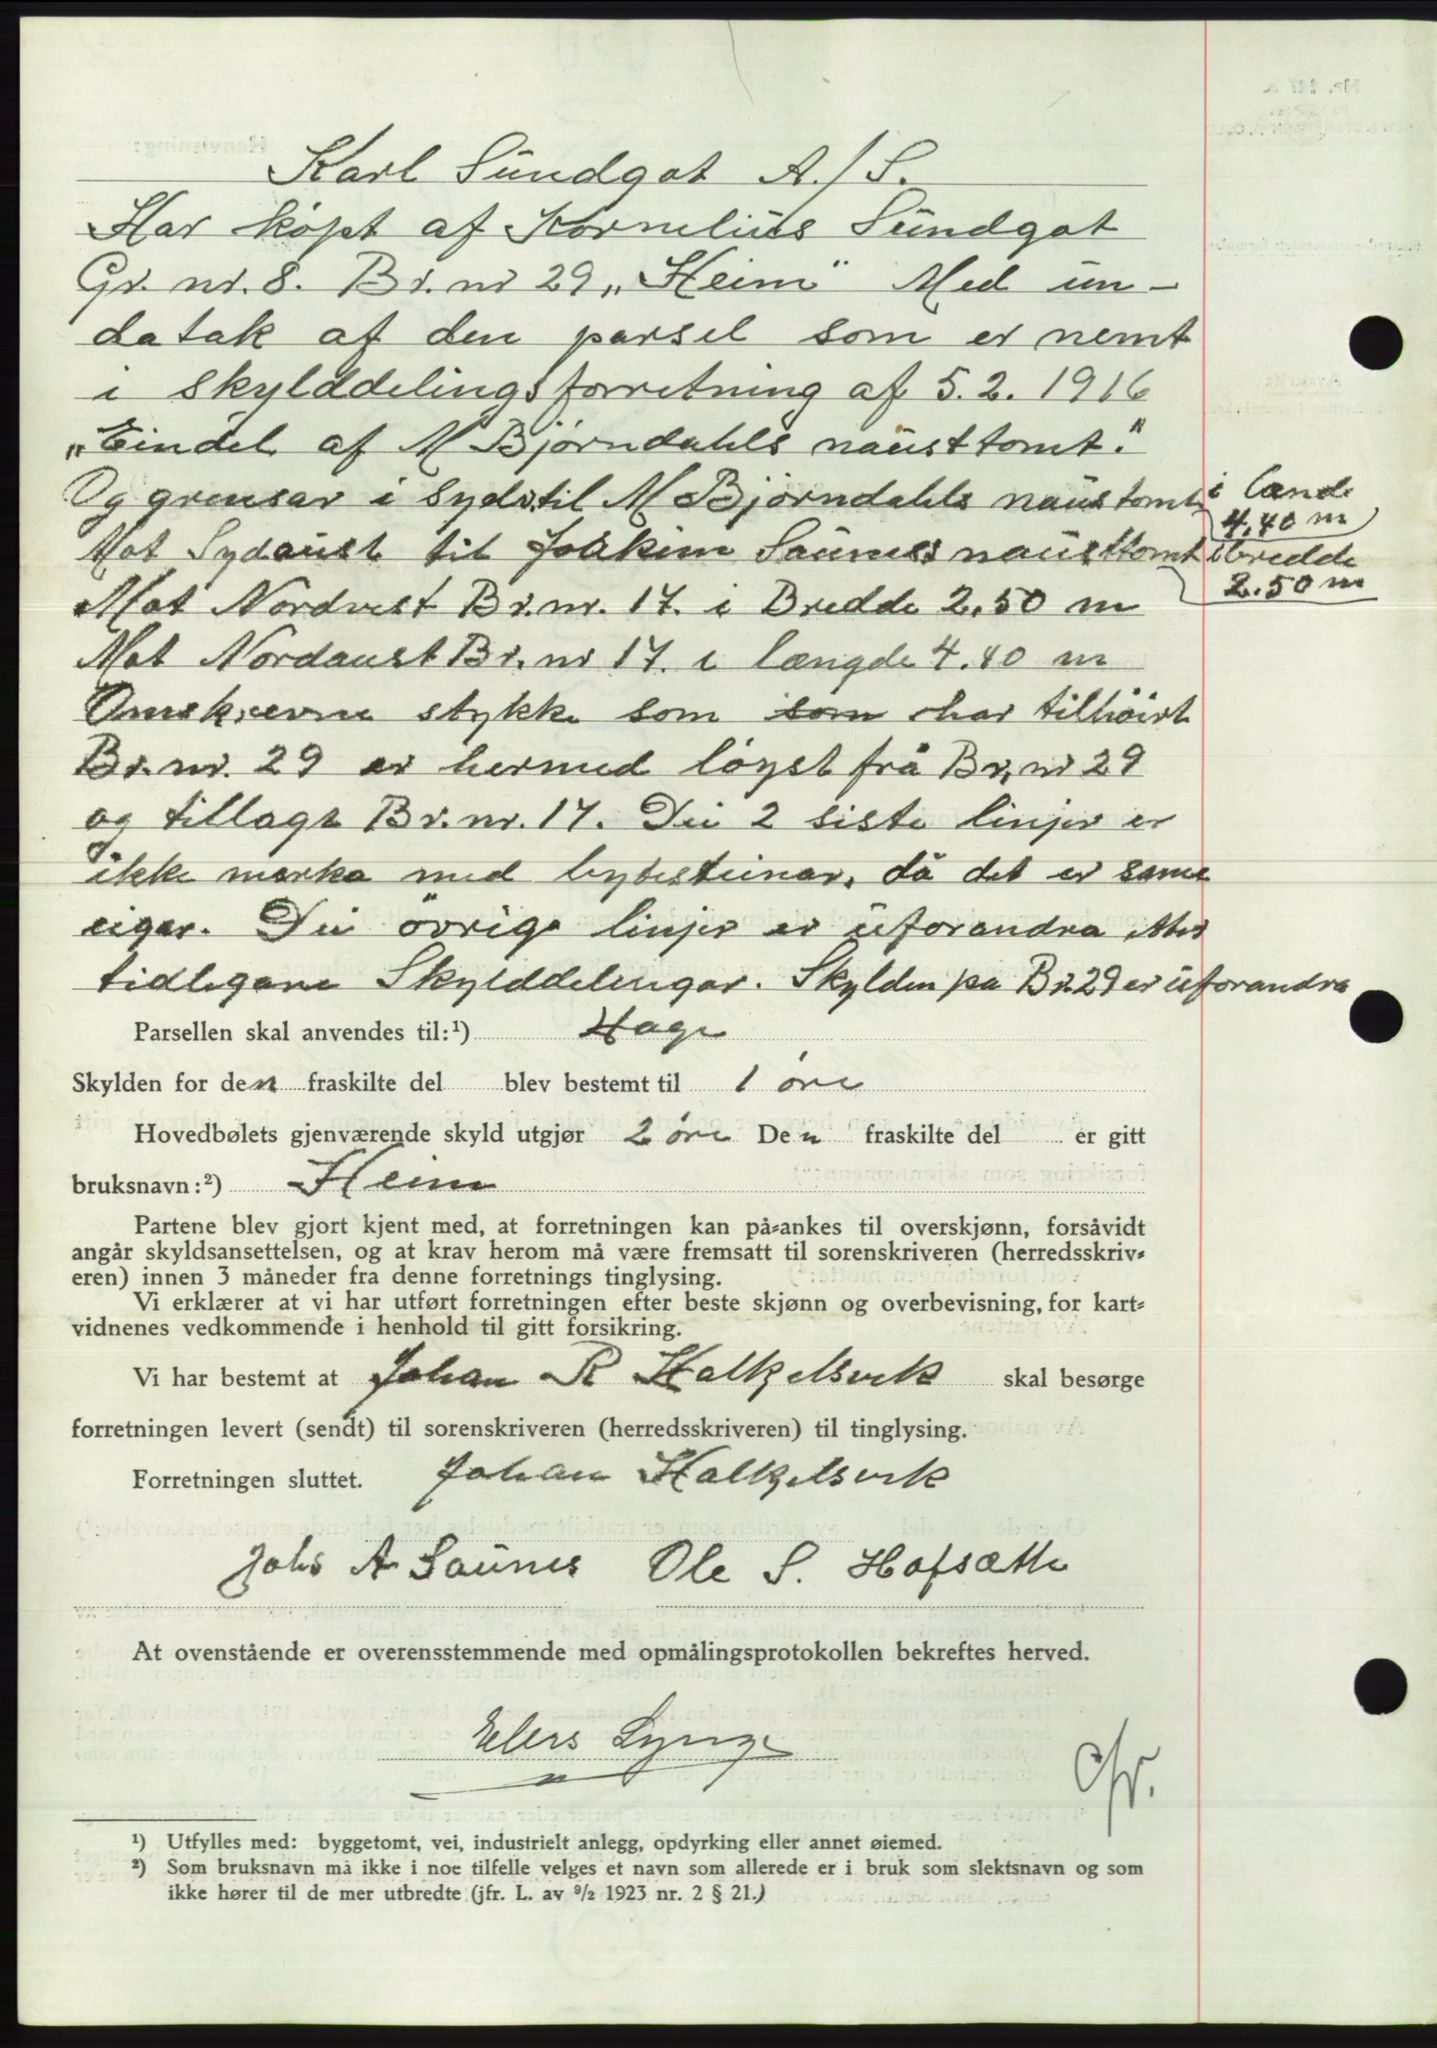 Karl Sundgot A./S.
Har köpt af Kornelius Sundgot
Gr. nr. 8. Br. nr 29 „Heim" Med un-
datak af den parsel som er nemt
i skylddelingsforretning af 5.2. 1916
„Eindel af M Bjørndahls nausttomt."
Og grensar i Syd til M Bjørndahls naustomt i længde
4,40 m
Mot Sydaust til Joakim Saunes nausttomt i bredde
2.50 m
Mot Nordvest Br. nr. 17. i Bredde 2,50 m
Mot Nordaust Br. nr 17. i længde 4.40 m
Omskrevne stykke som som har tilhöirt
Br. nr. 29 er hermed löyst frå Br, nr 29
og tillagt Br. nr. 17. Dei 2 siste linjer er
ikke merka med bytesteinar, då det er same
eigar. Dei övrige linjer er uforandra etter
tidlegare Skylddelingar. Skylden pa Br. 29 er uforandra
Parsellen skal anvendes til:¹) Hage
Skylden for den fraskilte del blev bestemt til 1 öre
Hovedbølets gjenværende skyld utgjør 2 öre Den fraskilte del er gitt
bruksnavn:²) Heim
Partene blev gjort kjent med, at forretningen kan på-ankes til overskjønn, forsåvidt
angår skyldsansettelsen, og at krav herom må være fremsatt til sorenskriveren (herredsskriv-
eren) innen 3 måneder fra denne forretnings tinglysing.
Vi erklærer at vi har utført forretningen efter beste skjønn og overbevisning, for kart-
vidnenes vedkommende i henhold til gitt forsikring.
Vi har bestemt at Johan R Halkjelsvik skal besørge
forretningen levert (sendt) til sorenskriveren (herredsskriveren) til tinglysing.
Forretningen sluttet. Johan Halkjelsvik
Johs A Saunes Ole S. Hofsætte
At ovenstående er overensstemmende med opmålingsprotokollen bekreftes herved.
Elers Lynge
¹) Utfylles med: byggetomt, vei, industrielt anlegg, opdyrking eller annet øiemed.
²) Som bruksnavn må ikke i noe tilfelle velges et navn som allerede er i bruk som slektsnavn og som
ikke hører til de mer utbredte (jfr. L. av ⁹/₂ 1923 nr. 2 § 21.)